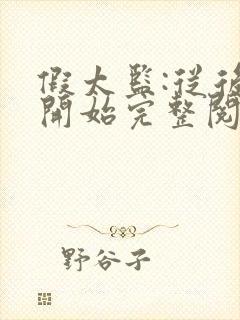 假太監:從後
開始完整閱
野谷子